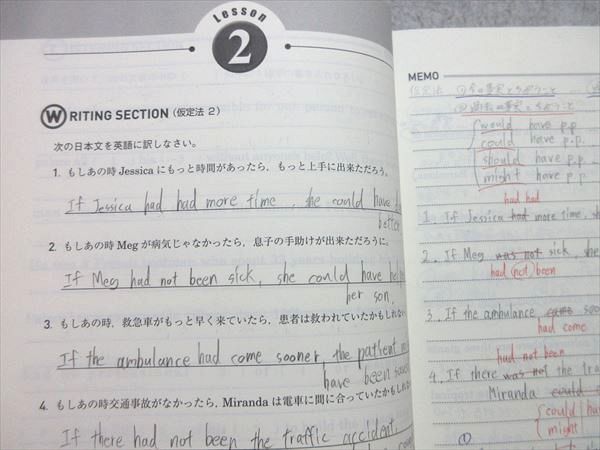 Lesson
2
W RITING SECTION (仮定法 2)
次の日本文を英語に訳しなさい。
1. もしあの時 Jessica にもっと時間があったら，もっと上手に出来ただろう。
If Jessica had had more time, she could have
better
2. もしあの時 Meg が病気じゃなかったら，息子の手助けが出来ただろうに。
If Meg had not been sick, she could have
her son.
3. もしあの時，救急車がもっと早く来ていたら，患者は救われていたかもしれない
If the ambulance had come sooner, the patient
have been
4. もしあの時交通事故がなかったら，Miranda は電車に間に合っていたかもしれ
If there had not been the traffic accident,
MEMO
仮定法
would have p.p.
could have p.p.
should have p.p.
might have p.p.
had had
1. If Jessica had more time, she
2. If Meg was not sick, she
had (not) been
3. If the ambulance came soon
had come
had not been
4. If there was not the tra
Miranda could
could
might
①